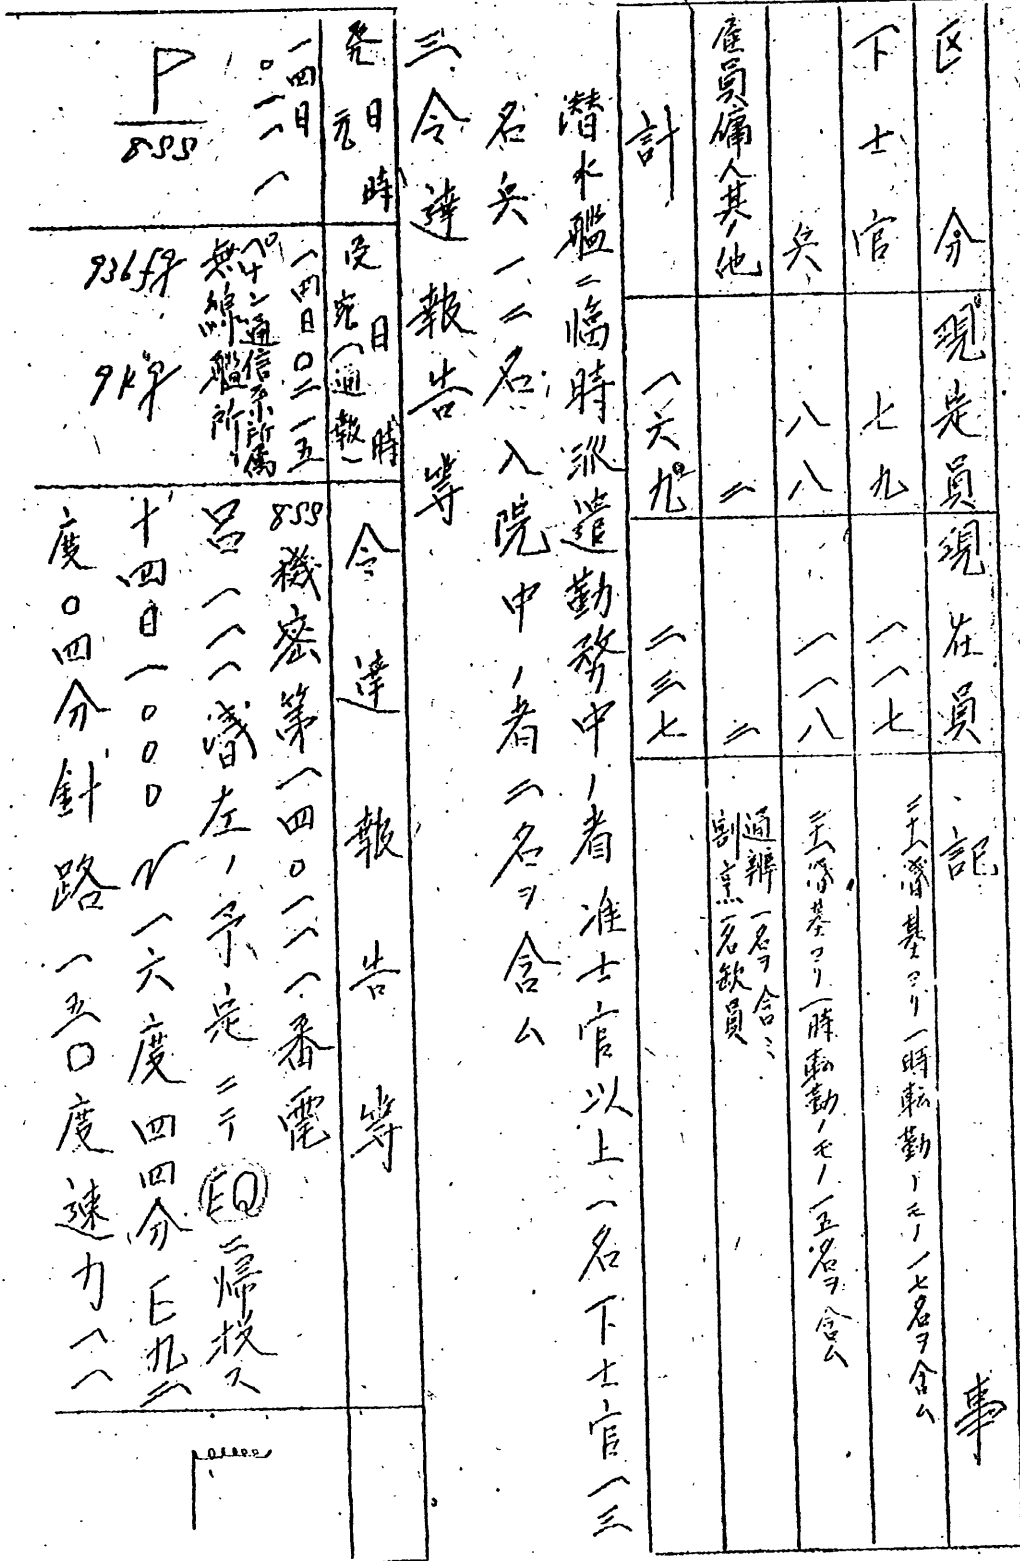 区分 現定員 現在員 記事
下士官 七九 一一七 二十一潜基ヨリ一時転勤ノモノ一七名ヲ含ム
兵 八八 一一八 二十一潜基ヨリ一時転勤ノモノ一五名ヲ含ム
雇員傭人其ノ他 二 二 通辨一名ヲ含ミ
割烹一名欠員
計 一六九 二三七
潜水艦ニ臨時派遣勤務中ノ者准士官以上一名下士官一三
名兵一二名入院中ノ者二名ヲ含ム
三、令達報告等
発日時
元
受日時
宛(通報)
令達報告等
一四日
〇一一一
P
8SS
一四日〇二一五
ペナン通信系所属
無線艦所
936fg
9Kg
8SS機密第一四〇一一一番電
呂一一一潜左ノ予定ニテEQニ帰投ス
十四日一〇〇〇N一六度四四分E九二
度〇四分針路一五〇度速力一一